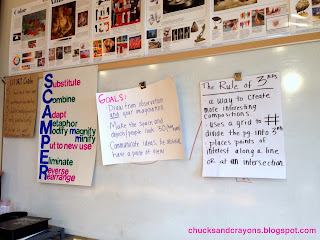 SCAMPER
Substitute
Combine
Adapt
Metaphor
Modify magnify
minify
Put to new use
Eliminate
Reverse
Rearrange
GOALS:
Draw from observation
and your imagination
Make the space and
objects/people look 3D
Communicate ideas,
have a point of view
The Rule of 3rds
a way to create
more interesting
compositions.
Uses a grid to #
divide the pg. into 3rds
places points of
interest along a line
or at an intersection.
chucksandcrayons.blogspot.com